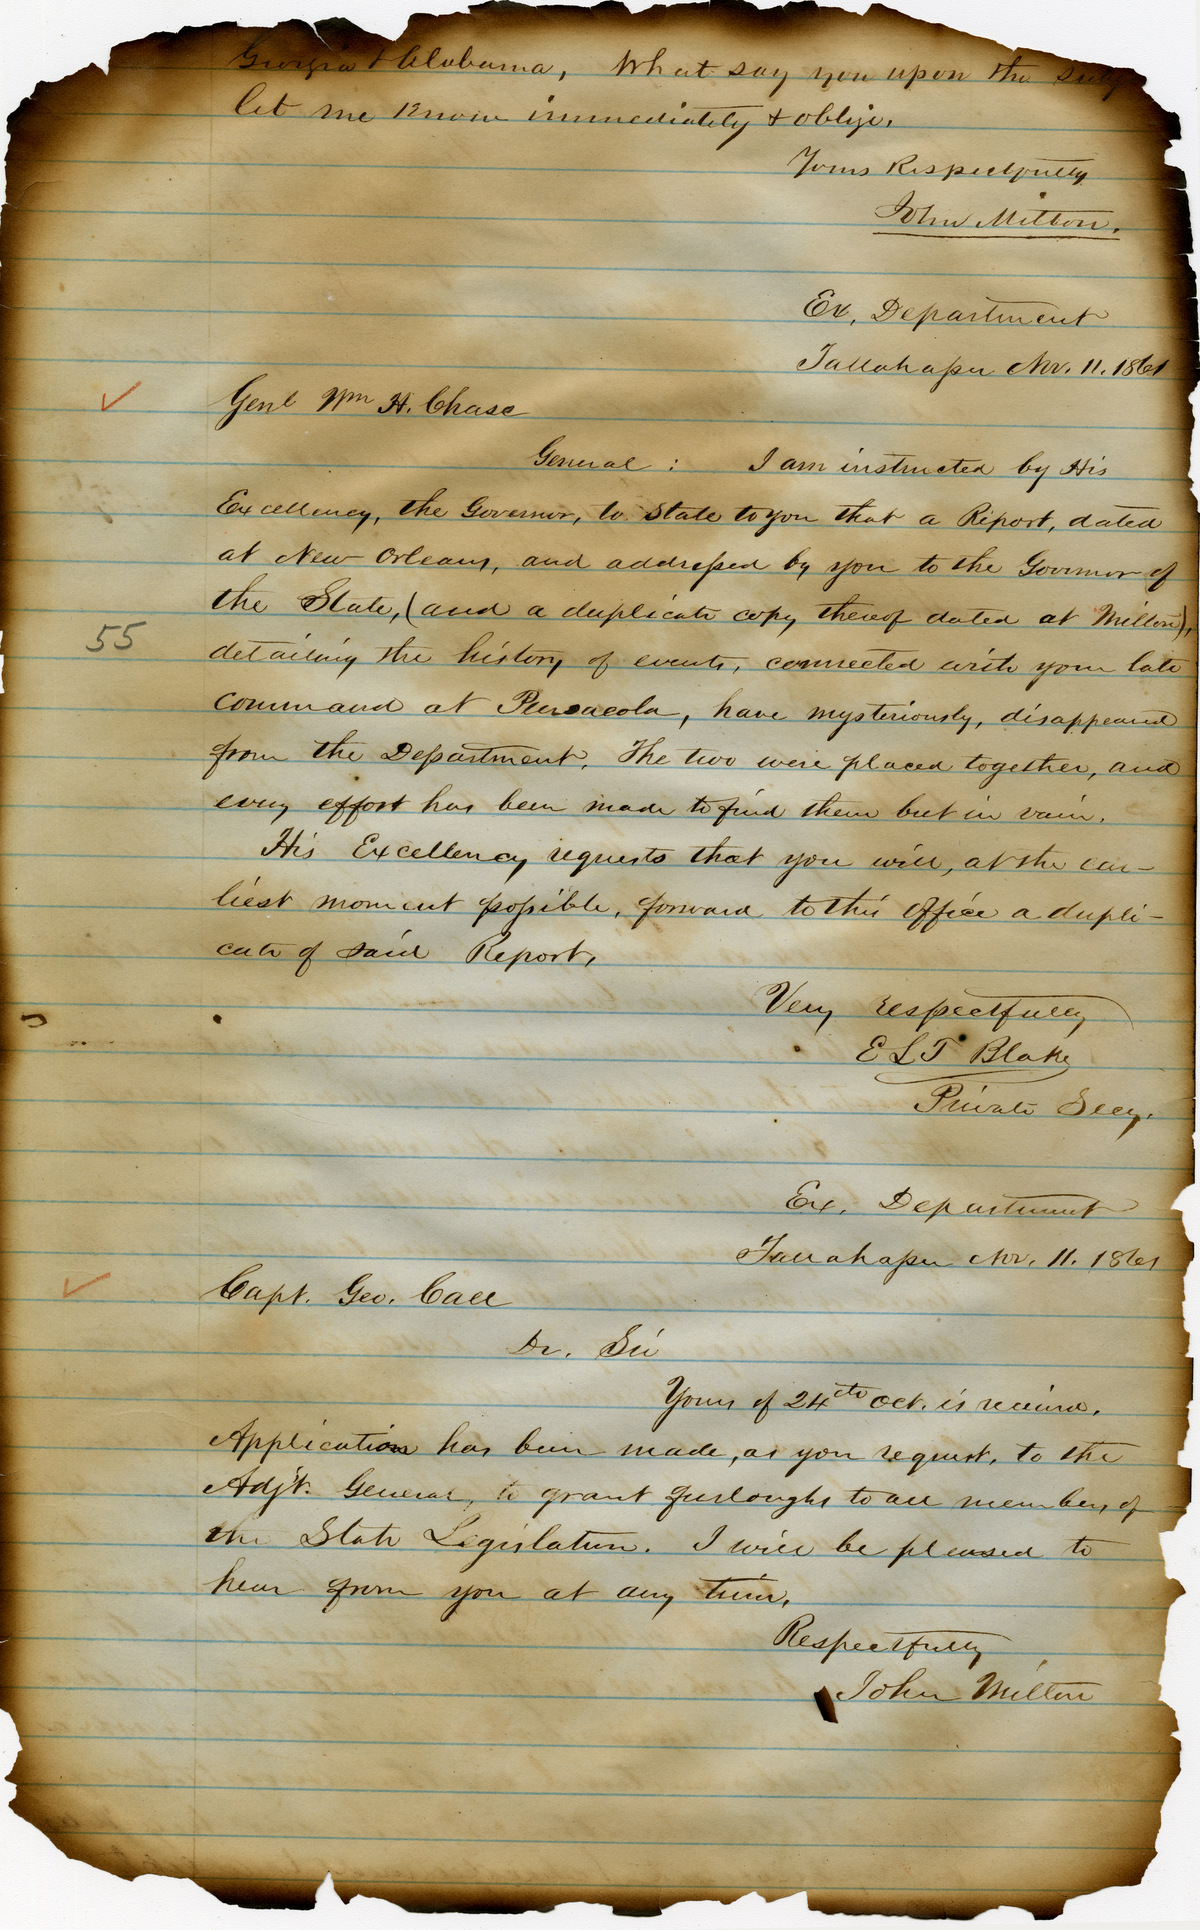 Georgia & Alabama, What say you upon the
let me know immediately & oblige.
Yours Respectfully
John Milton.
Ex. Department
Tallahassee Nov. 11. 1861
Genl Wm H. Chase
General : I am instructed by His
Excellency, the Governor, to state to you that a Report, dated
at New Orleans, and addressed by you to the Governor of
the State, (and a duplicate copy thereof dated at Milton),
55
detailing the history of events, connected with your late
command at Pensacola, have mysteriously, disappeared
from the Department. The two were placed together, and
every effort has been made to find them but in vain.
His Excellency requests that you will, at the ear-
liest moment possible, forward to this office a dupli-
cate of said Report.
Very respectfully
E L T Blake
Private Secy.
Ex. Department
Tallahassee Nov. 11. 1861
Capt. Geo. Call
Dr. Sir
Yours of 24th Oct. is received.
Application has been made, as you request, to the
Adjt. General, to grant furloughs to all members of
the State Legislature. I will be pleased to
hear from you at any time.
Respectfully
John Milton